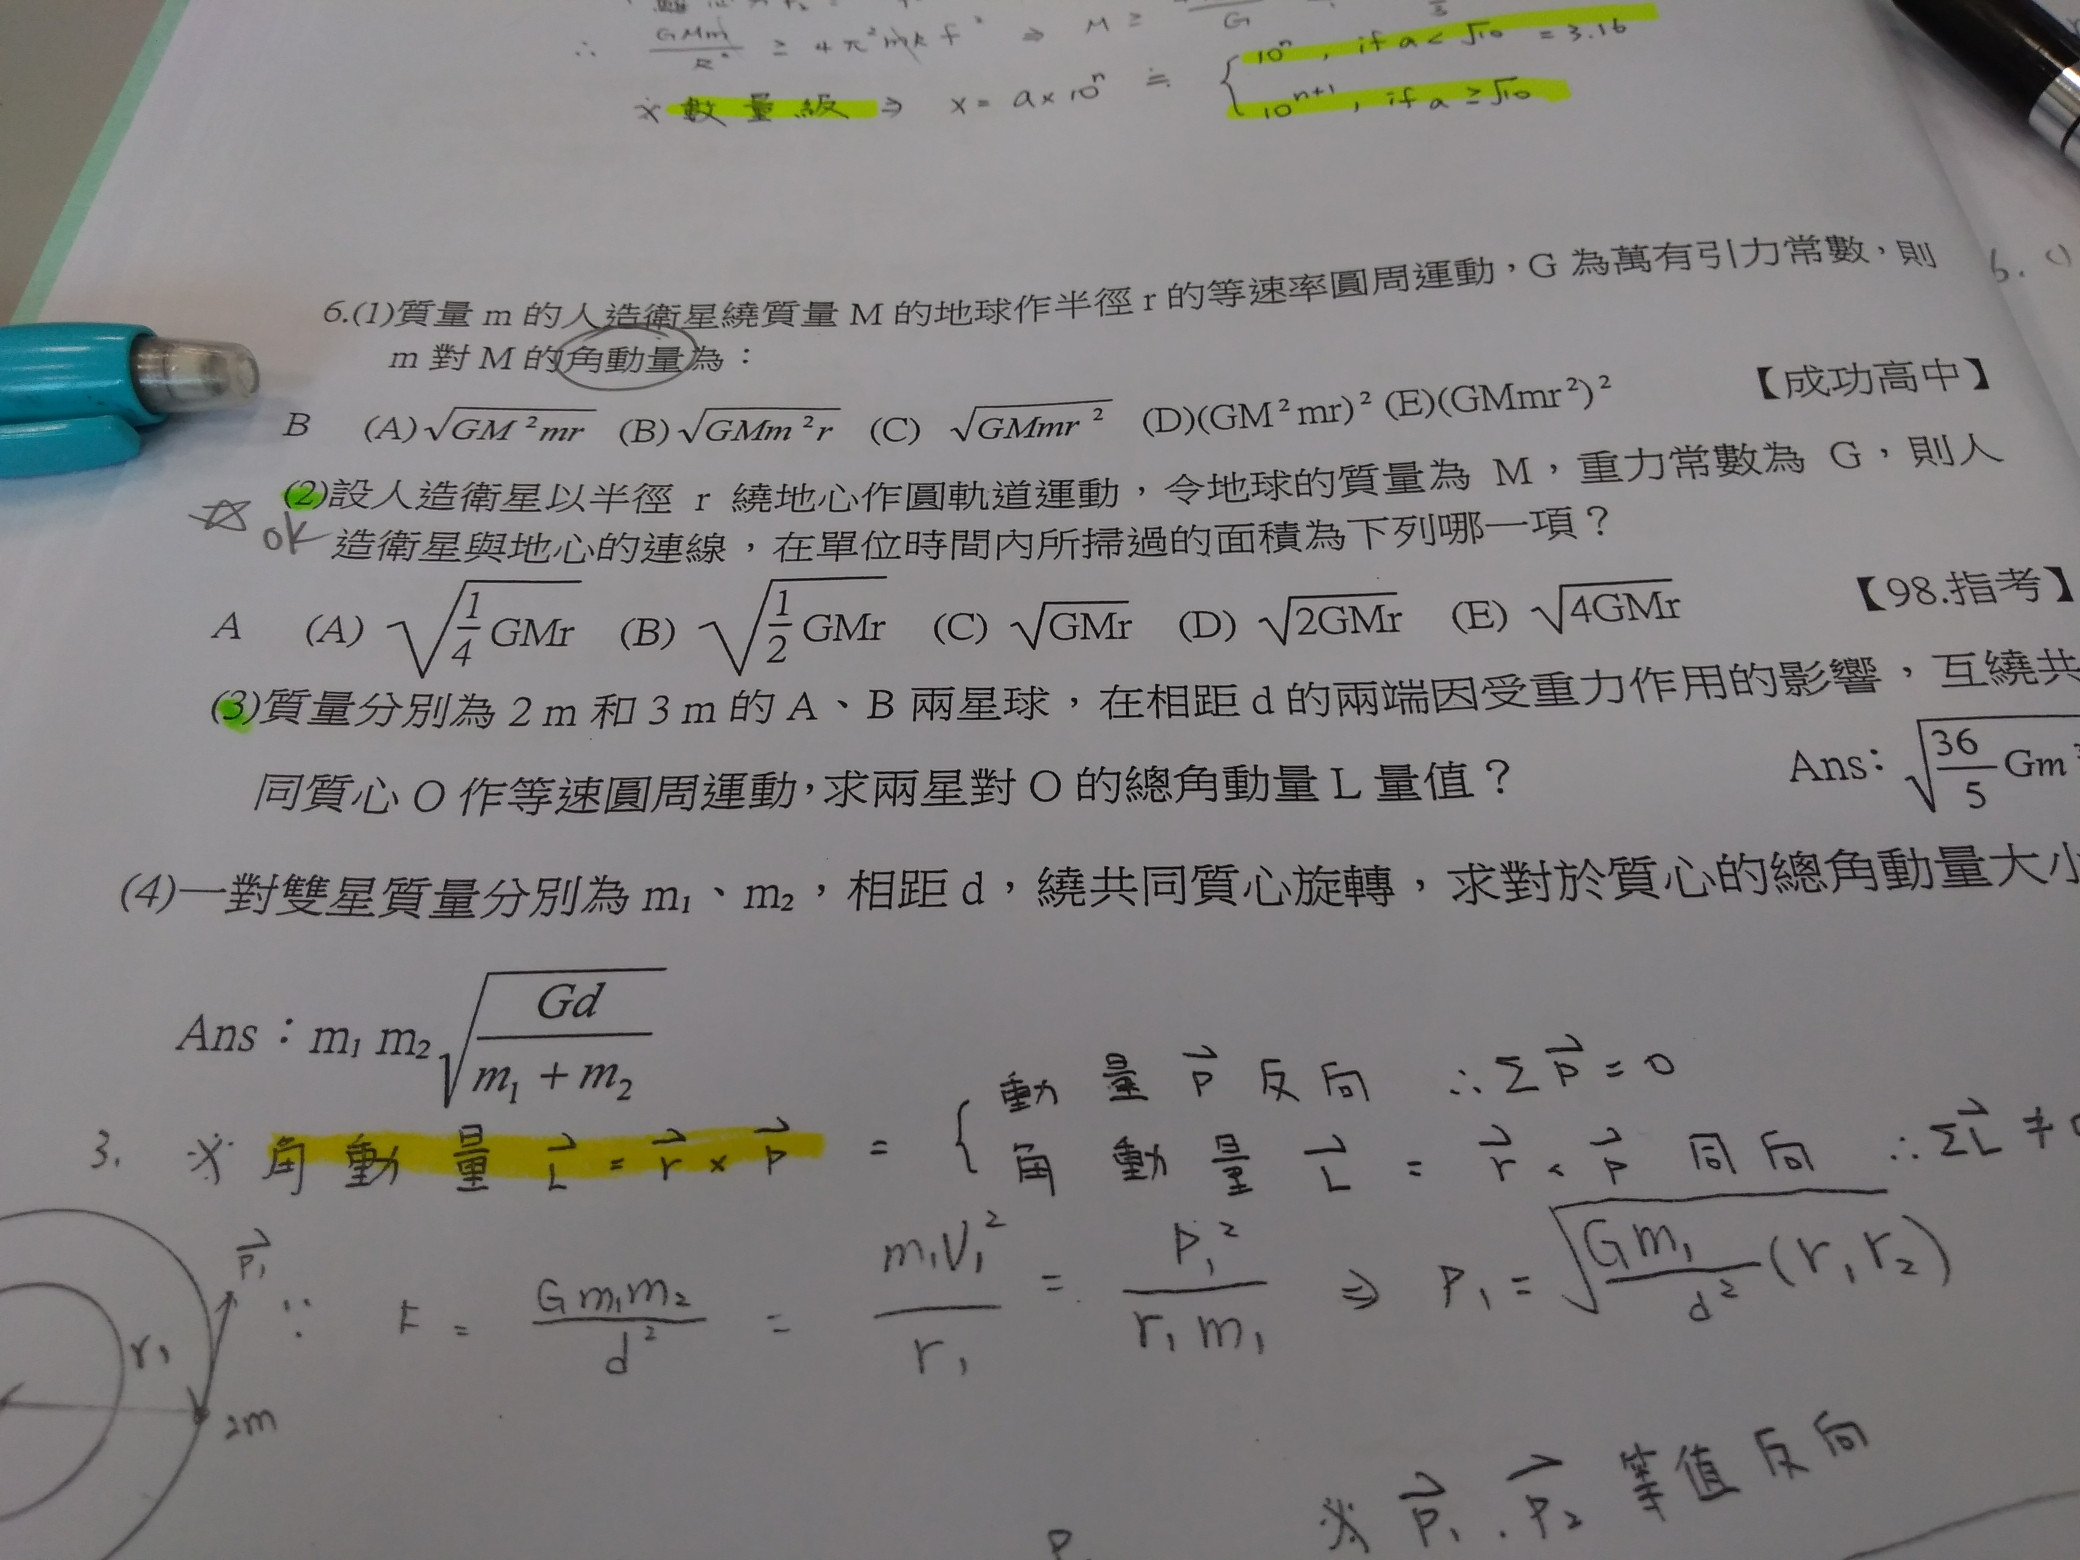 ∴ GMm/R² ≥ 4π²mRf² ⇒ M ≥
※ 數量級 ⇒ x = a×10ⁿ ≒ { 10ⁿ , if a < √10 = 3.16
10ⁿ⁺¹ , if a ≥ √10
6.(1)質量 m 的人造衛星繞質量 M 的地球作半徑 r 的等速率圓周運動，G 為萬有引力常數，則
m 對 M 的角動量為：
B (A)√(GM²mr) (B)√(GMm²r) (C) √(GMmr²) (D)(GM²mr)² (E)(GMmr²)² 【成功高中】
(2)設人造衛星以半徑 r 繞地心作圓軌道運動，令地球的質量為 M，重力常數為 G，則人
ok 造衛星與地心的連線，在單位時間內所掃過的面積為下列哪一項？
A (A) √(1/4 GMr) (B) √(1/2 GMr) (C) √(GMr) (D) √(2GMr) (E) √(4GMr) 【98.指考】
(3)質量分別為 2 m 和 3 m 的 A、B 兩星球，在相距 d 的兩端因受重力作用的影響，互繞共
同質心 O 作等速圓周運動，求兩星對 O 的總角動量 L 量值？ Ans: √(36/5 Gm
(4)一對雙星質量分別為 m₁、m₂，相距 d，繞共同質心旋轉，求對於質心的總角動量大小
Ans：m₁ m₂ √(Gd/(m₁ + m₂))
3. ※ 角動量 L⃗ = r⃗ × p⃗ = { 動量 p⃗ 反向 ∴ Σp⃗ = 0
角動量 L⃗ = r⃗ × p⃗ 同向 ∴ ΣL⃗ ≠ 0
p⃗₁
r₁
2m
∵ F = Gm₁m₂/d² = m₁v₁²/r₁ = p₁²/(r₁m₁) ⇒ P₁ = √(Gm₁/d² (r₁r₂)
※ p⃗₁ . p⃗₂ 等值反向